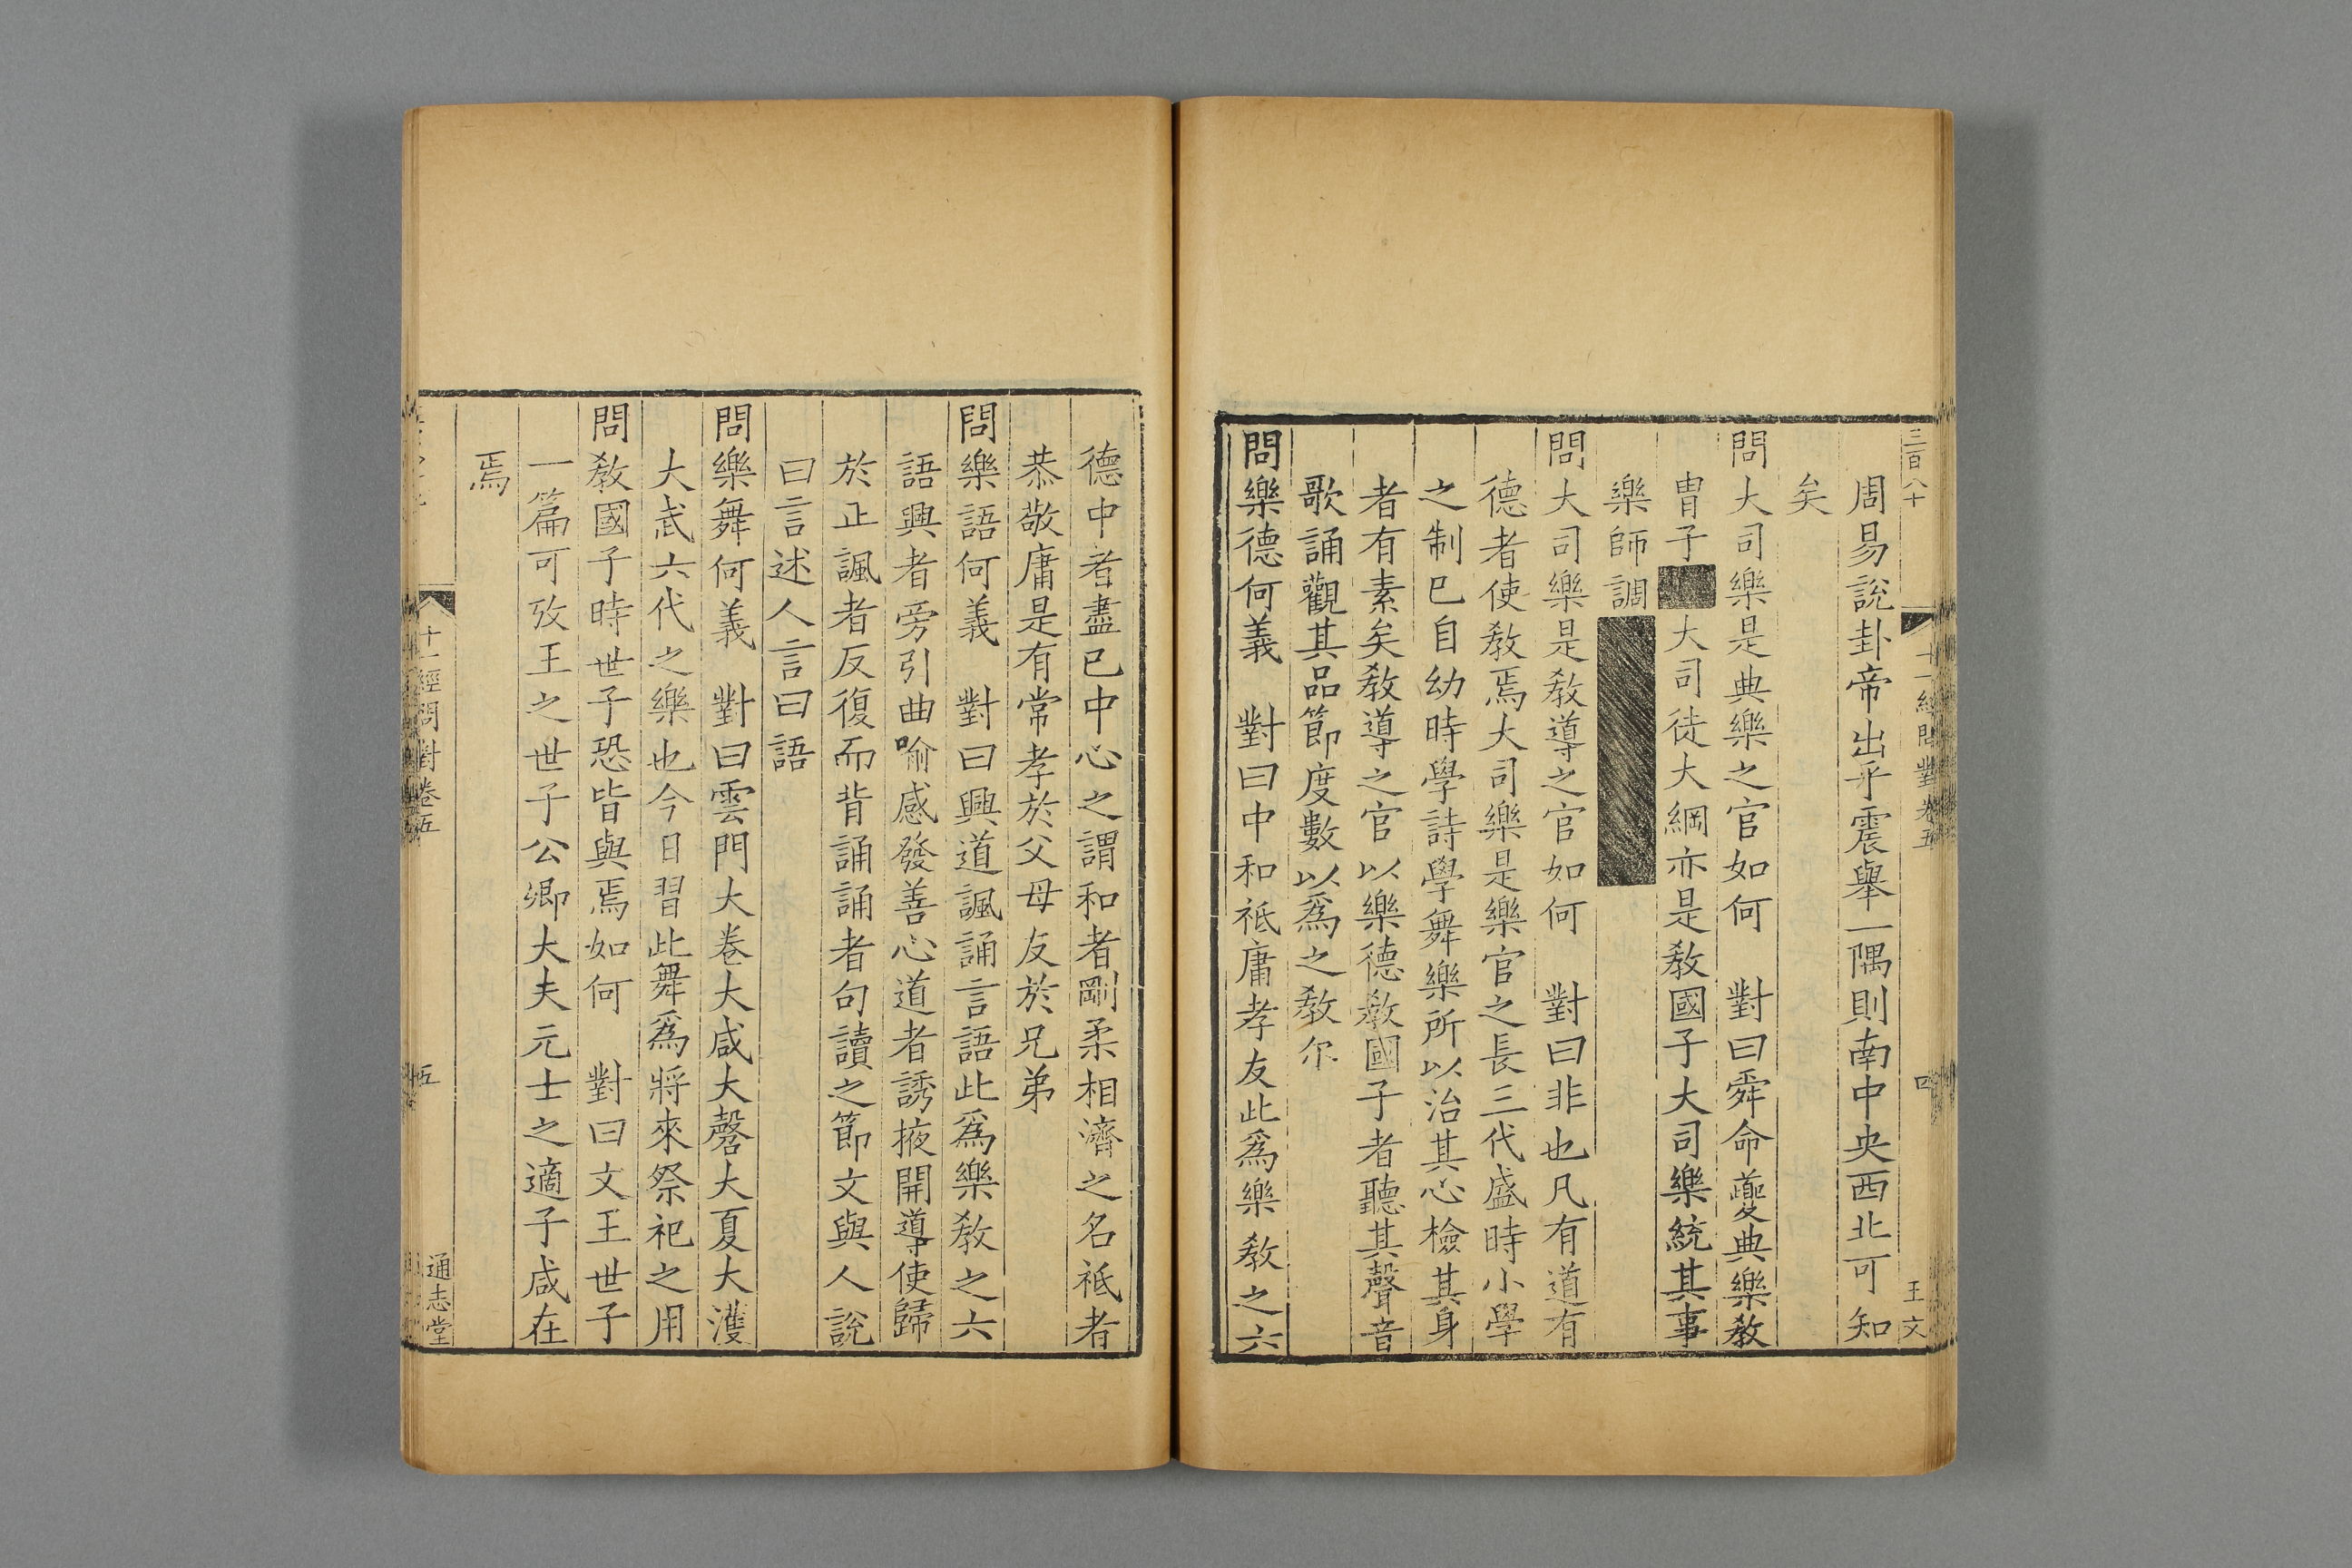 三百八十
十一經問對卷五
四
王文
周易說卦帝出乎震舉一隅則南中央西北可知
矣
問大司樂是典樂之官如何　對曰舜命夔典樂敎
胄子■大司徒大綱亦是敎國子大司樂統其事
樂師調
問大司樂是敎導之官如何　對曰非也凡有道有
德者使敎焉大司樂是樂官之長三代盛時小學
之制已自幼時學詩學舞樂所以治其心檢其身
者有素矣敎導之官以樂德敎國子者聽其聲音
歌誦觀其品節度數以爲之敎尔
問樂德何義　對曰中和祗庸孝友此爲樂敎之六
德中者盡已中心之謂和者剛柔相濟之名祗者
恭敬庸是有常孝於父母友於兄弟
問樂語何義　對曰興道諷誦言語此爲樂敎之六
語興者旁引曲喻感發善心道者誘掖開導使歸
於正諷者反復而背誦誦者句讀之節文與人說
曰言述人言曰語
問樂舞何義　對曰雲門大卷大咸大磬大夏大濩
大武六代之樂也今日習此舞爲將來祭祀之用
問敎國子時世子恐皆與焉如何　對曰文王世子
一篇可攷王之世子公卿大夫元士之適子咸在
焉
十一經問對卷五
五
通志堂